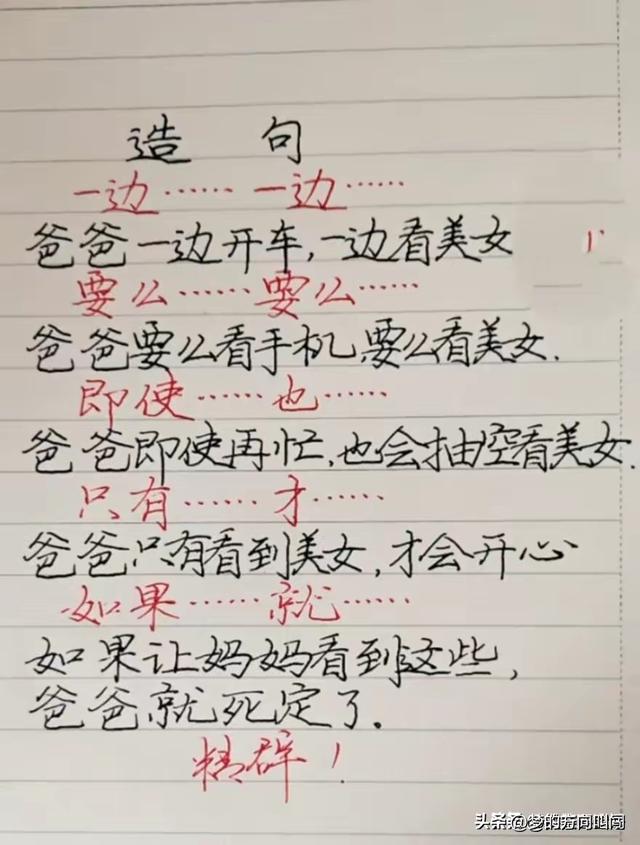 造 句
一边…… 一边……
爸爸一边开车,一边看美女
要么……要么……
爸爸要么看手机,要么看美女.
即使……也……
爸爸即使再忙,也会抽空看美女.
只有……才……
爸爸只有看到美女,才会开心
如果……就……
如果让妈妈看到这些,
爸爸就死定了.
精辟!